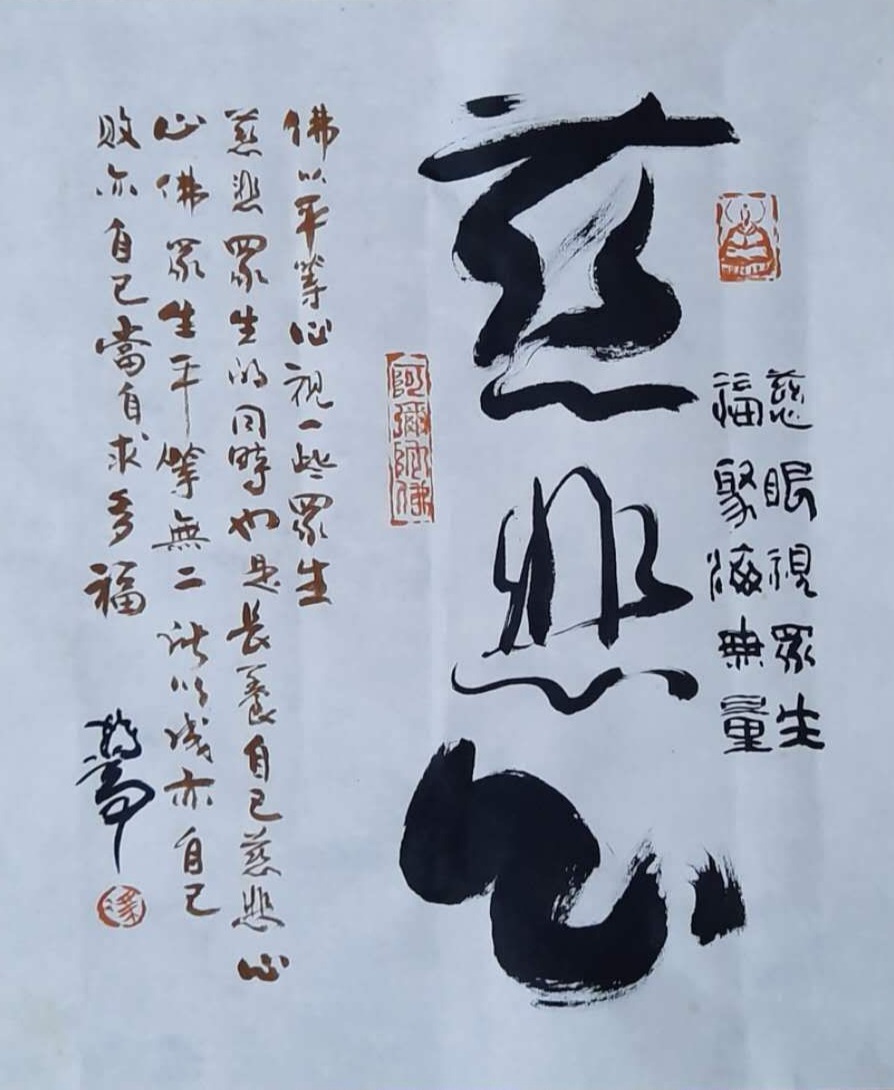 慈眼視眾生
福聚海無量
慈悲心
阿彌陀佛
佛以平等心視一些眾生
慈悲眾生的同時也是長養自己慈悲心
心佛眾生平等無二所以成亦自己
敗亦自己當自求多福